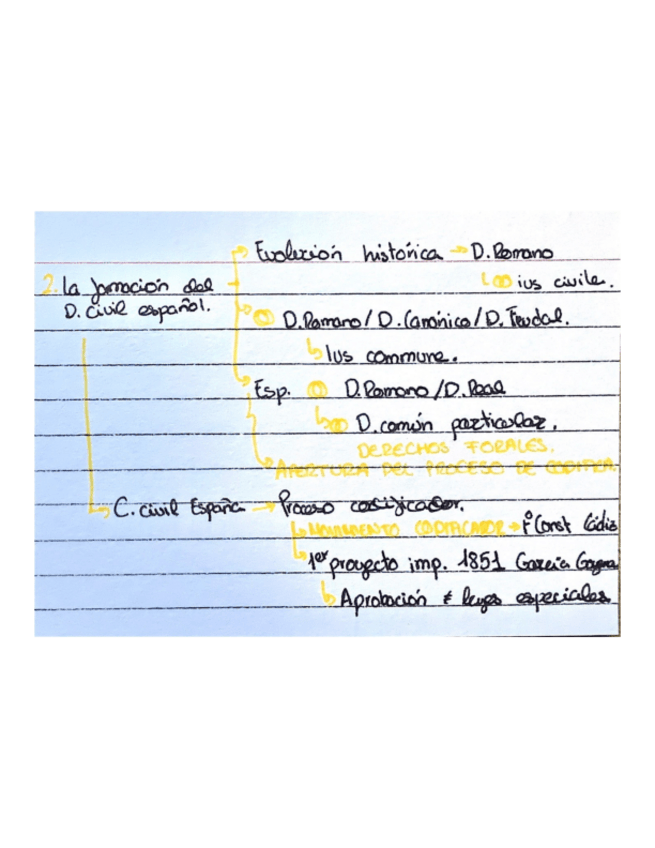 Evolución histórica → D. Romano
2. La formación del
D. civil español.
ius civile.
D. Romano / D. Canónico / D. Feudal.
Ius commune.
Esp. D. Romano / D. Real
D. común particular.
DERECHOS FORALES.
APERTURA DEL PROCESO DE CODIFICA.
C. civil España → Proceso codificador.
MOVIMIENTO CODIFICADOR → Const Cádiz
1er proyecto imp. 1851 García Goyena
Aprobación ≠ leyes especiales